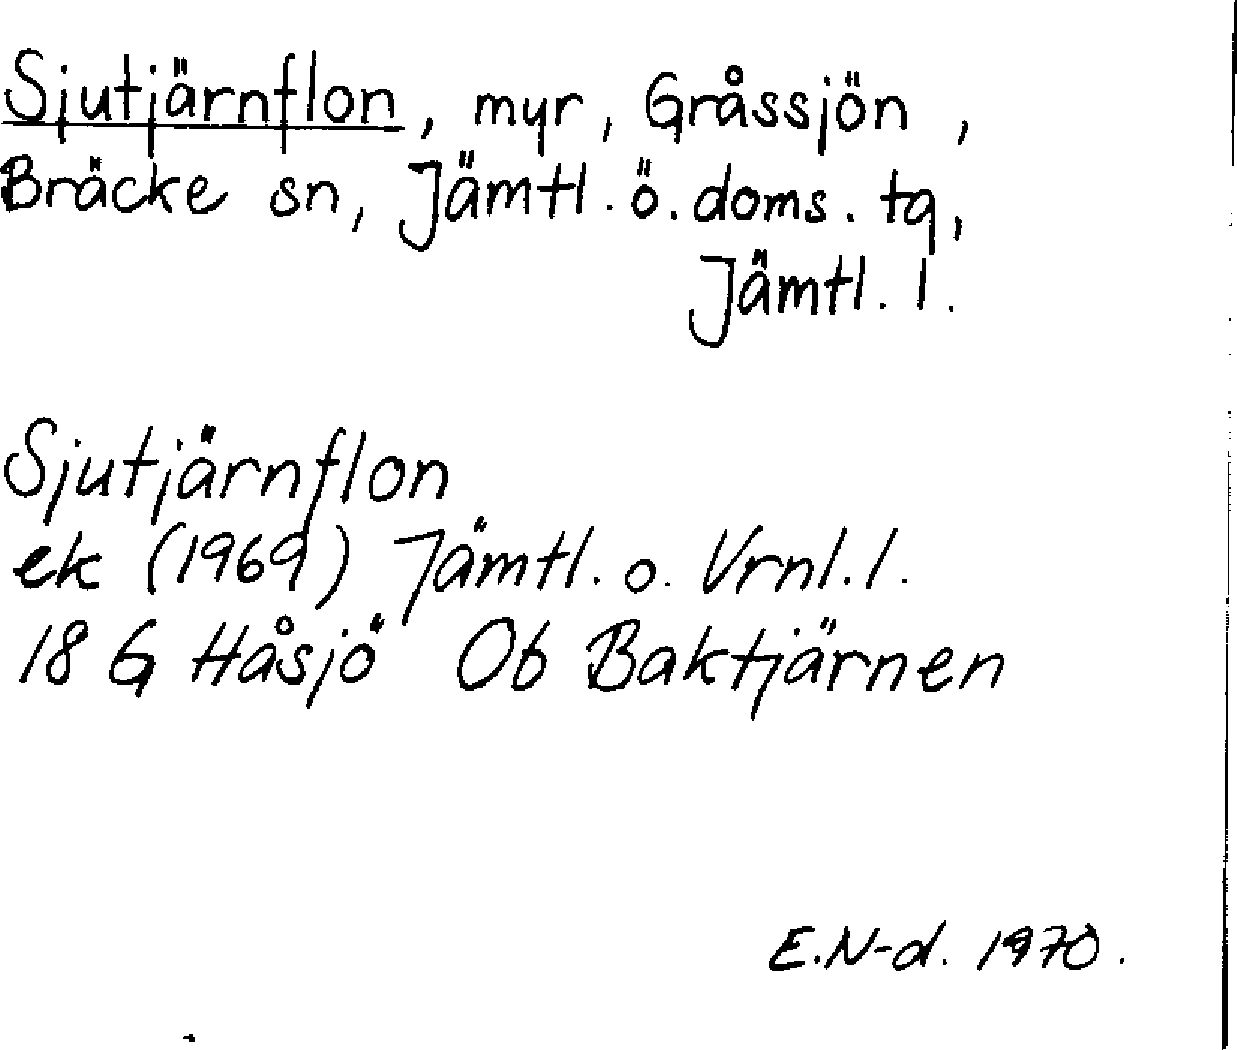 Sjutjärnflon, myr, Gråssjön,
Bräcke sn, Jämtl. ö. doms. tg,
Jämtl. l.
Sjutjärnflon
ek (1969) Jämtl. o. Vrnl. l.
18 G Håsjö Ob Baktjärnen
E.N-d. 1970.